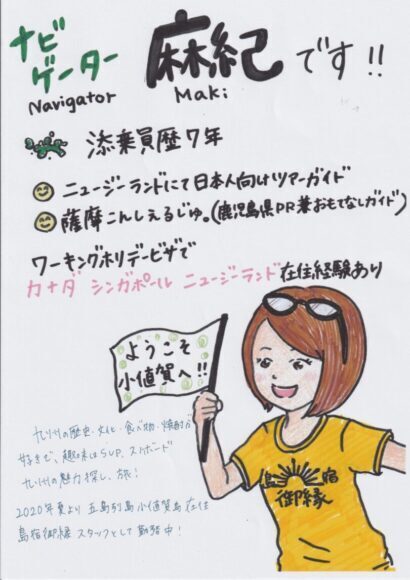 ナビ
ゲーター 麻紀です!!
Navigator Maki
添乗員歴7年
ニュージーランドにて日本人向けツアーガイド
薩摩こんしぇるじゅ。(鹿児島県PR兼おもてなしガイド)
ワーキングホリデービザで
カナダ シンガポール ニュージーランド在住経験あり
ようこそ
小値賀へ!!
九州の歴史・文化・食べ物・焼酎が
好きで、趣味はSUP、スノボード
九州の魅力探し、旅!
2020年夏より 五島列島小値賀島在住
島宿御縁スタッフとして勤務中!
島宿
御縁